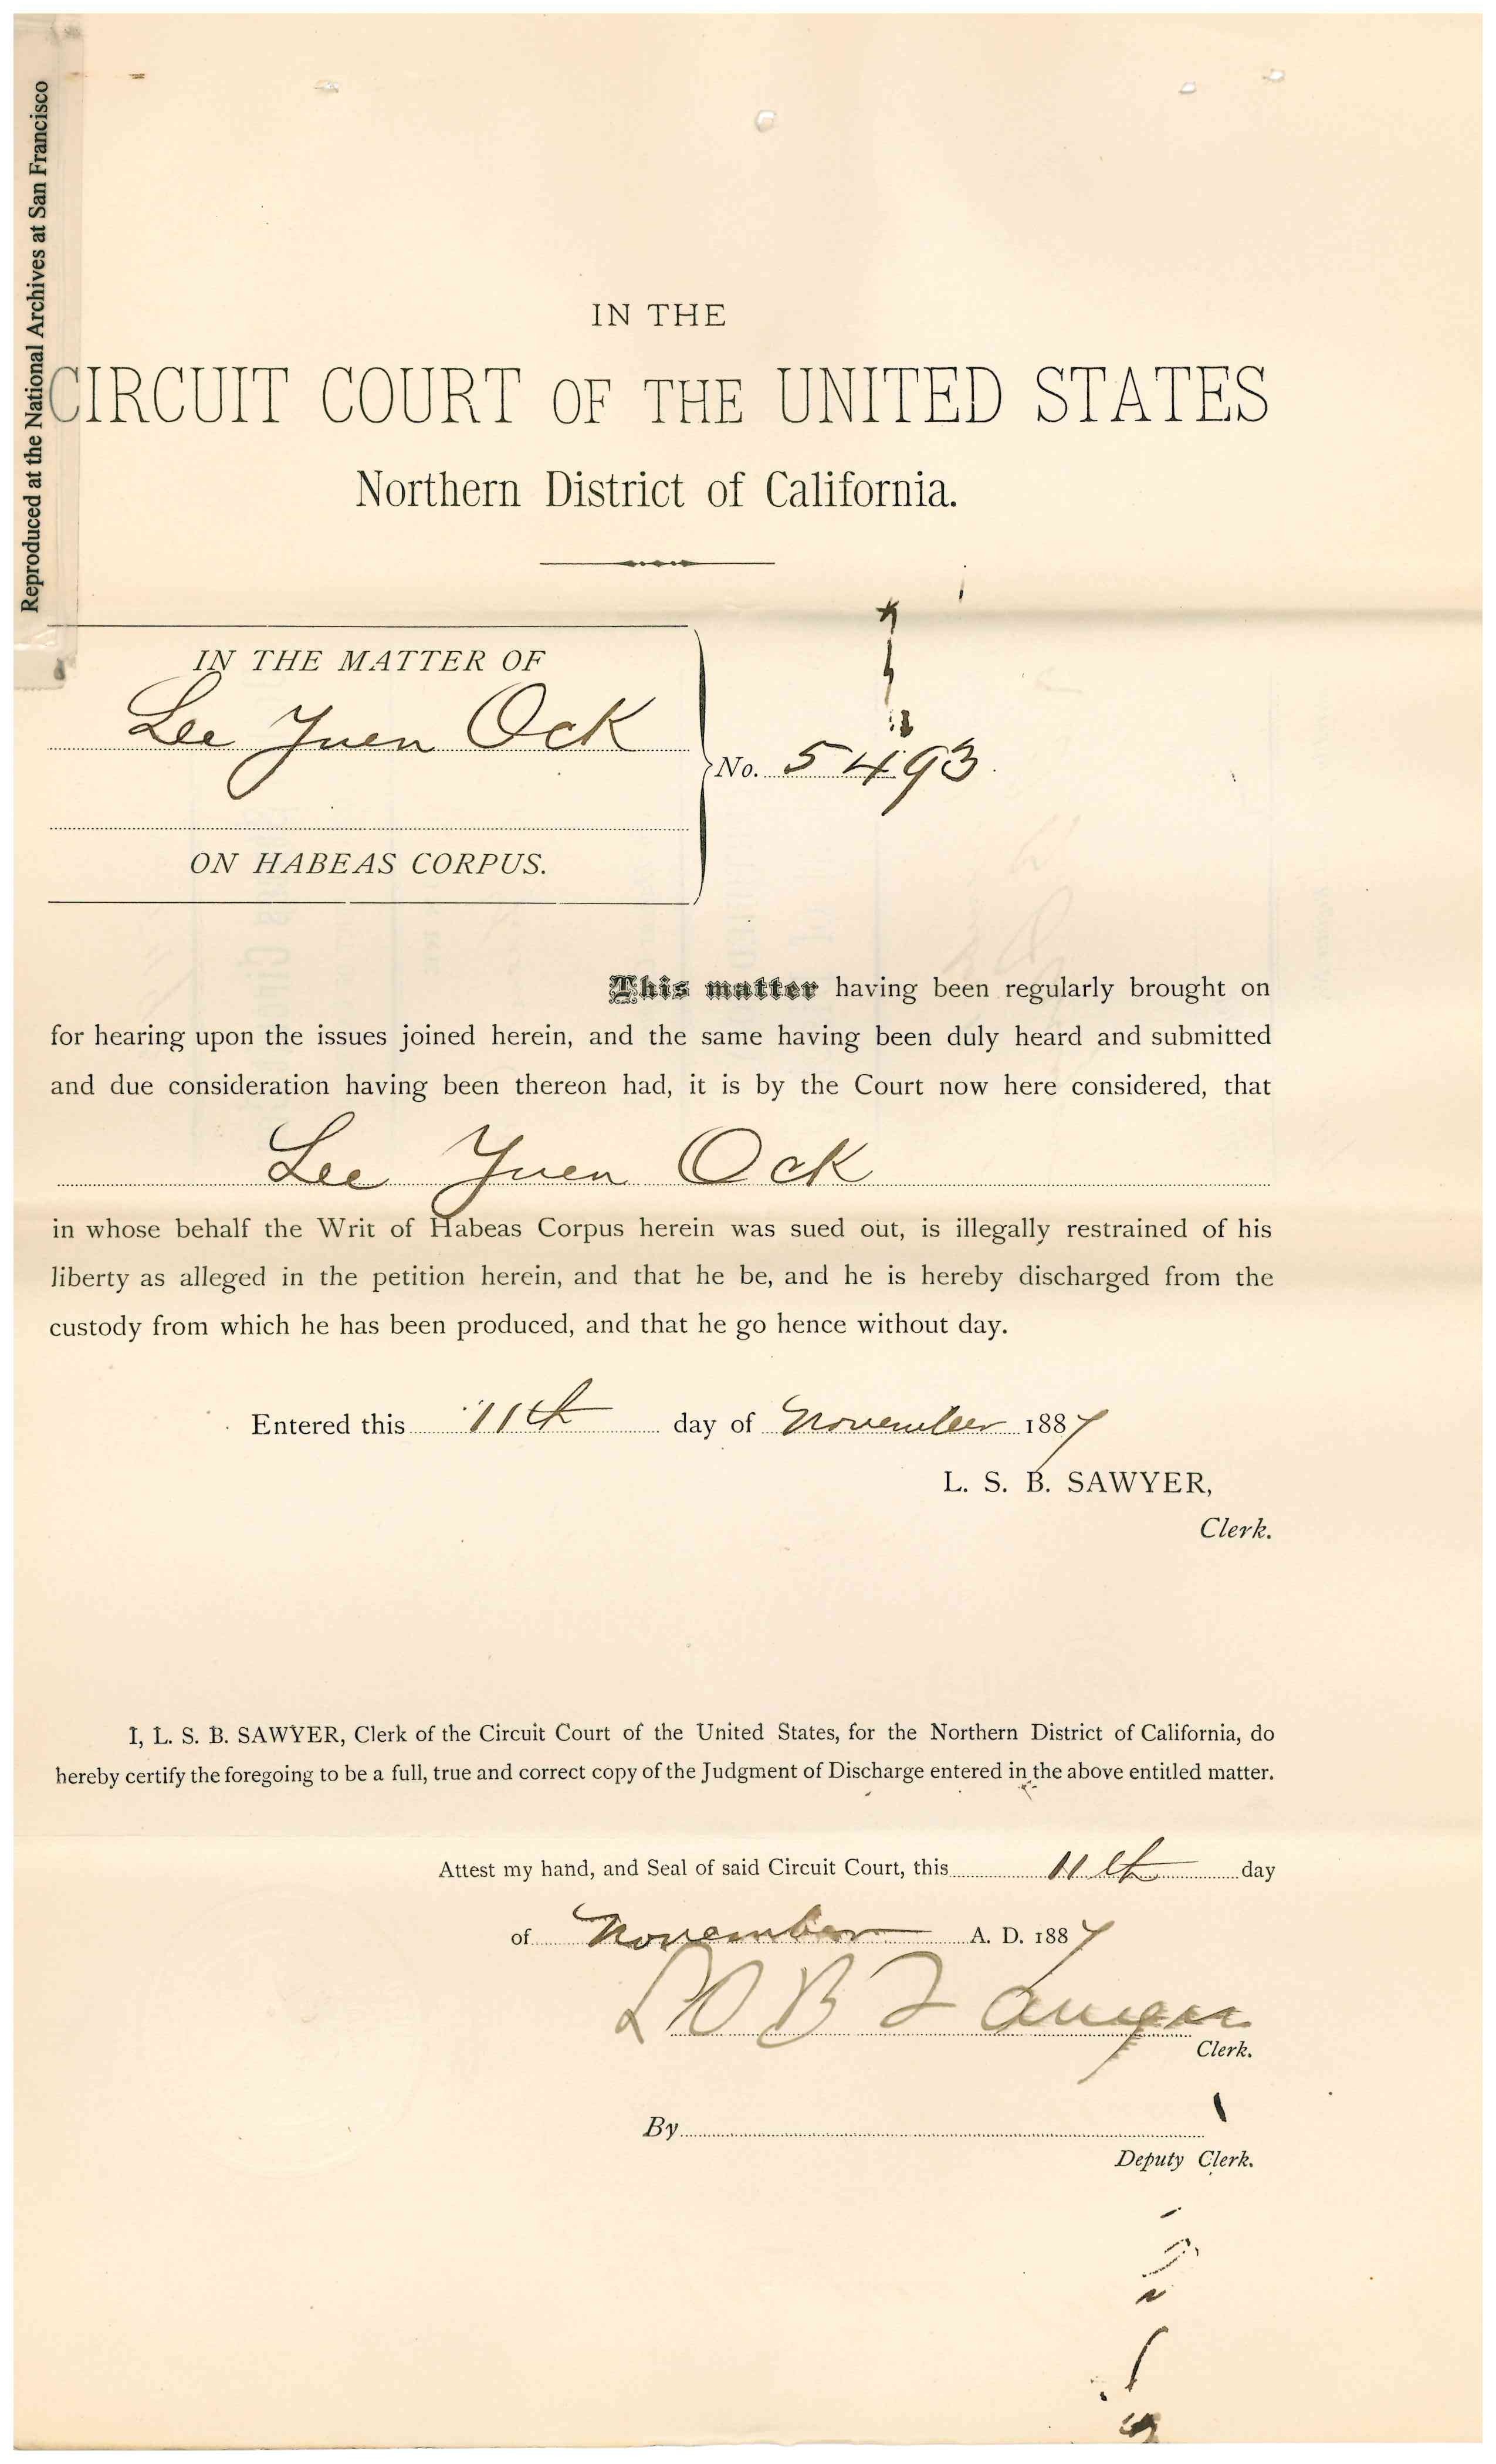 Reproduced at the National Archives at San Francisco
IN THE
CIRCUIT COURT OF THE UNITED STATES
Northern District of California.
IN THE MATTER OF
Lee Yuen Ock
No. 5493.
ON HABEAS CORPUS.
This matter having been regularly brought on
for hearing upon the issues joined herein, and the same having been duly heard and submitted
and due consideration having been thereon had, it is by the Court now here considered, that
Lee Yuen Ock
in whose behalf the Writ of Habeas Corpus herein was sued out, is illegally restrained of his
liberty as alleged in the petition herein, and that he be, and he is hereby discharged from the
custody from which he has been produced, and that he go hence without day.
Entered this 11th day of November 1887
L. S. B. SAWYER,
Clerk.
I, L. S. B. SAWYER, Clerk of the Circuit Court of the United States, for the Northern District of California, do
hereby certify the foregoing to be a full, true and correct copy of the Judgment of Discharge entered in the above entitled matter.
Attest my hand, and Seal of said Circuit Court, this 11th day
of November A. D. 1887
L S B Sawyer
Clerk.
By
Deputy Clerk.